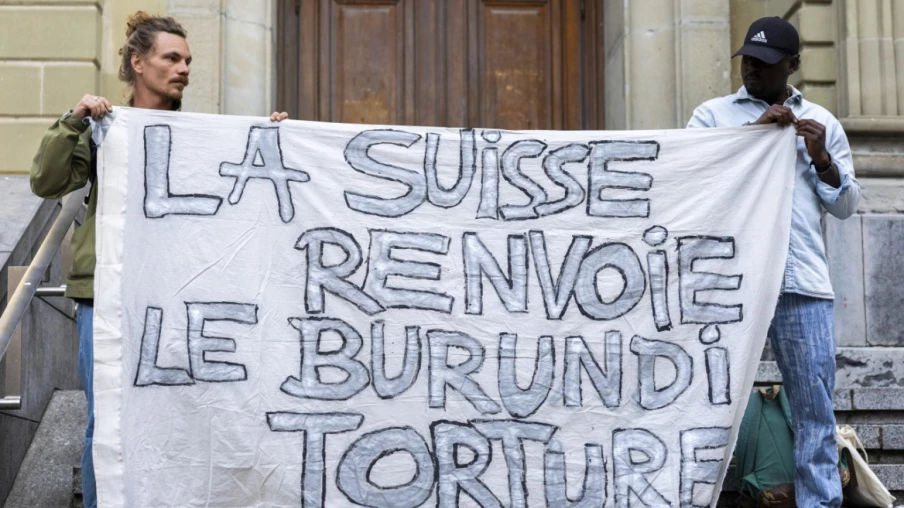 LA SUiSSE
RENVOiE
LE BURUNDi
TORTURE